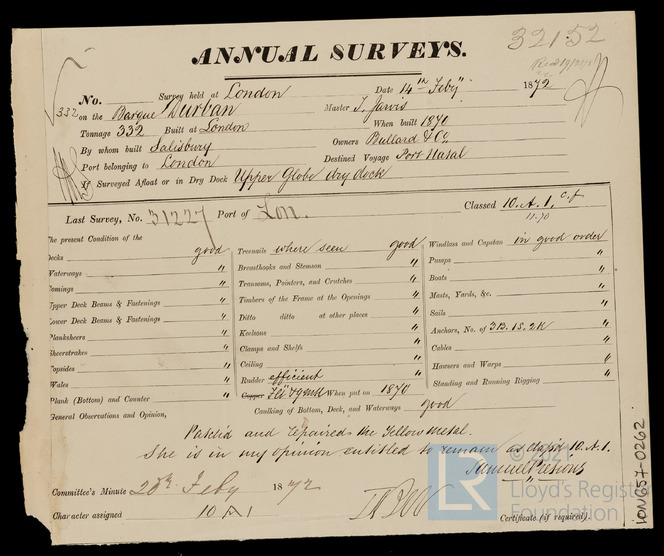 32152
ANNUAL SURVEYS.
No. Survey held at London Date 14th Feby 1872
332 on the Barque Durban Master J. Jarvis
Tonnage 332 Built at London When built 1870
By whom built Salisbury Owners Bullard & Co
Port belonging to London Destined Voyage Port Natal
If Surveyed Afloat or in Dry Dock Upper Globe dry dock
Last Survey, No. 31227 Port of Lon. Classed 10. A. 1, c.f
11.70
The present Condition of the
Decks good
Waterways "
Comings "
Upper Deck Beams & Fastenings "
Lower Deck Beams & Fastenings "
Planksheers "
Sheerstrakes "
Topsides "
Wales "
Plank (Bottom) and Counter "
General Observations and Opinion,
Treenails where seen good
Breasthooks and Stemson "
Transoms, Pointers, and Crutches "
Timbers of the Frame at the Openings "
Ditto ditto at other places "
Keelsons "
Clamps and Shelfs "
Ceiling "
Rudder efficient
Copper When put on 1870
Caulking of Bottom, Deck, and Waterways good
Windlass and Capstan in good order
Pumps "
Boats "
Masts, Yards, &c. "
Sails "
Anchors, No. of 3B. 1S. 2K "
Cables "
Hawsers and Warps "
Standing and Running Rigging "
and repaired the Yellow Metal.
She is in my opinion entitled to remain as class'd 10. A. 1.
Samuel Parsons
Committee's Minute 20th Feby 1872
Character assigned 10 A 1
Certificate (if required).
LON657-0262
© 2021
LR
Lloyd's Register
Foundation